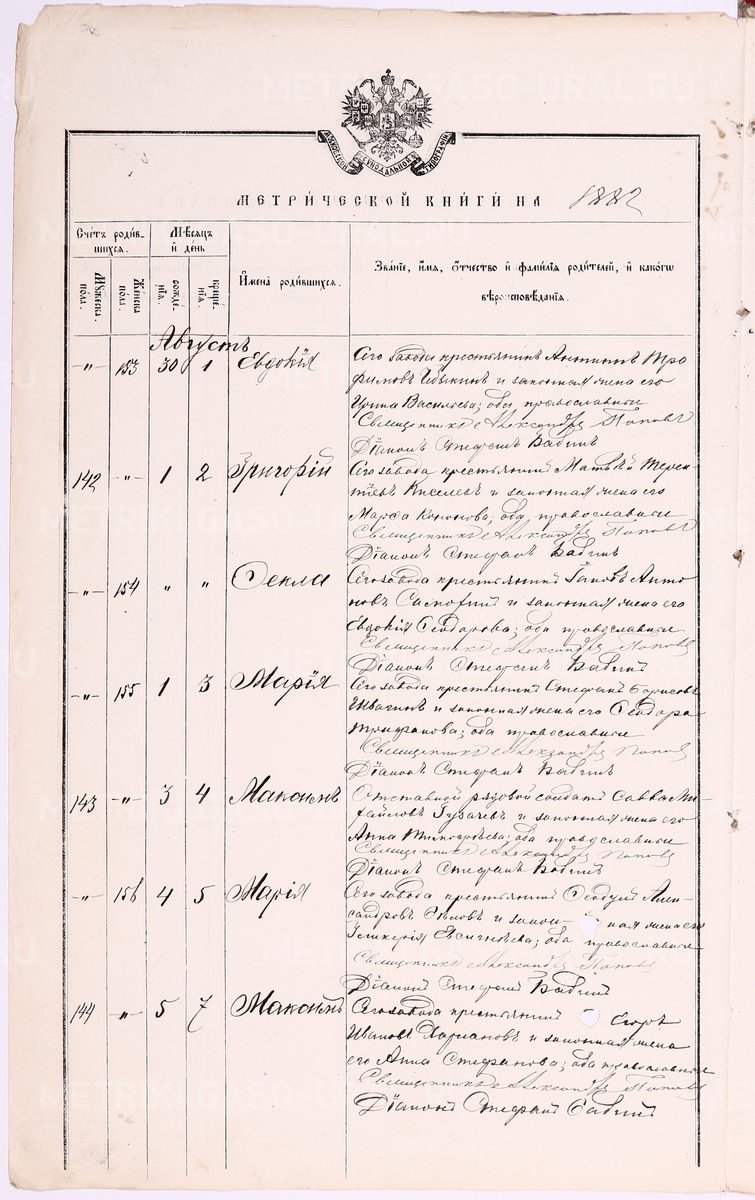 МОСКОВСКОЙ СѴНОДАЛЬНОЙ ТИПОГРАФІИ
МЕТРИ́ЧЕСКОЙ КНИ́ГИ НА 1882
Сче́тъ роди́в-
шихся.
Мѣ́сяцъ
и҆ де́нь
Мꙋ́жеска
по́ла.
Же́нска
по́ла.
рожде́-
нїѧ.
креще́-
нїѧ.
И҆мена̀ роди́вшихсѧ.
Зва́нїе, и҆́мѧ, ѻ҆́тчество и҆ фами́лїѧ роди́телей, и҆ како́гѡ
вѣроисповѣ́данїѧ.
Августъ
-"- 153 30 1 Евдокія
Сего завода крестьянинъ Антипъ Тро
фимовъ и законная жена его
Ирина Васильева; оба православные
Священникъ Александръ Поповъ
Діаконъ Стефанъ Бабинъ
142 -"- 1 2 Григорій
Сего завода крестьянинъ Матвѣй Терен
тіевъ Киселевъ и законная жена его
Марѳа Кононова; оба православные
Священникъ Александръ Поповъ
Діаконъ Стефанъ Бабинъ
-"- 154 " " Ѳекла
Сего завода крестьянинъ Іаковъ Анто
новъ и законная жена его
Евдокія Ѳеодорова; оба православные
Священникъ Александръ Поповъ
Діаконъ Стефанъ Бабинъ
-"- 155 1 3 Марія
Сего завода крестьянинъ Стефанъ Борисовъ
и законная жена его Ѳеодора
Трифанова; оба православные
Священникъ Александръ Поповъ
Діаконъ Стефанъ Бабинъ
143 -"- 3 4 Максимъ
Отставной рядовой солдатъ Савва Ми-
хайловъ и законная жена его
Анна Тимофѣева; оба православные
Священникъ Александръ Поповъ
Діаконъ Стефанъ Бабинъ
-"- 156 4 5 Марія
Сего завода крестьянинъ Алек
сандровъ и закон- ная жена его
Гликерія Евсигнѣева; оба православные
Священникъ Александръ Поповъ
Діаконъ Стефанъ Бабинъ
144 -"- 5 7 Максимъ
Сего завода крестьянинъ - Егоръ
Ивановъ и законная жена
его Анна Стефанова; оба православные
Священникъ Александръ Поповъ
Діаконъ Стефанъ Бабинъ